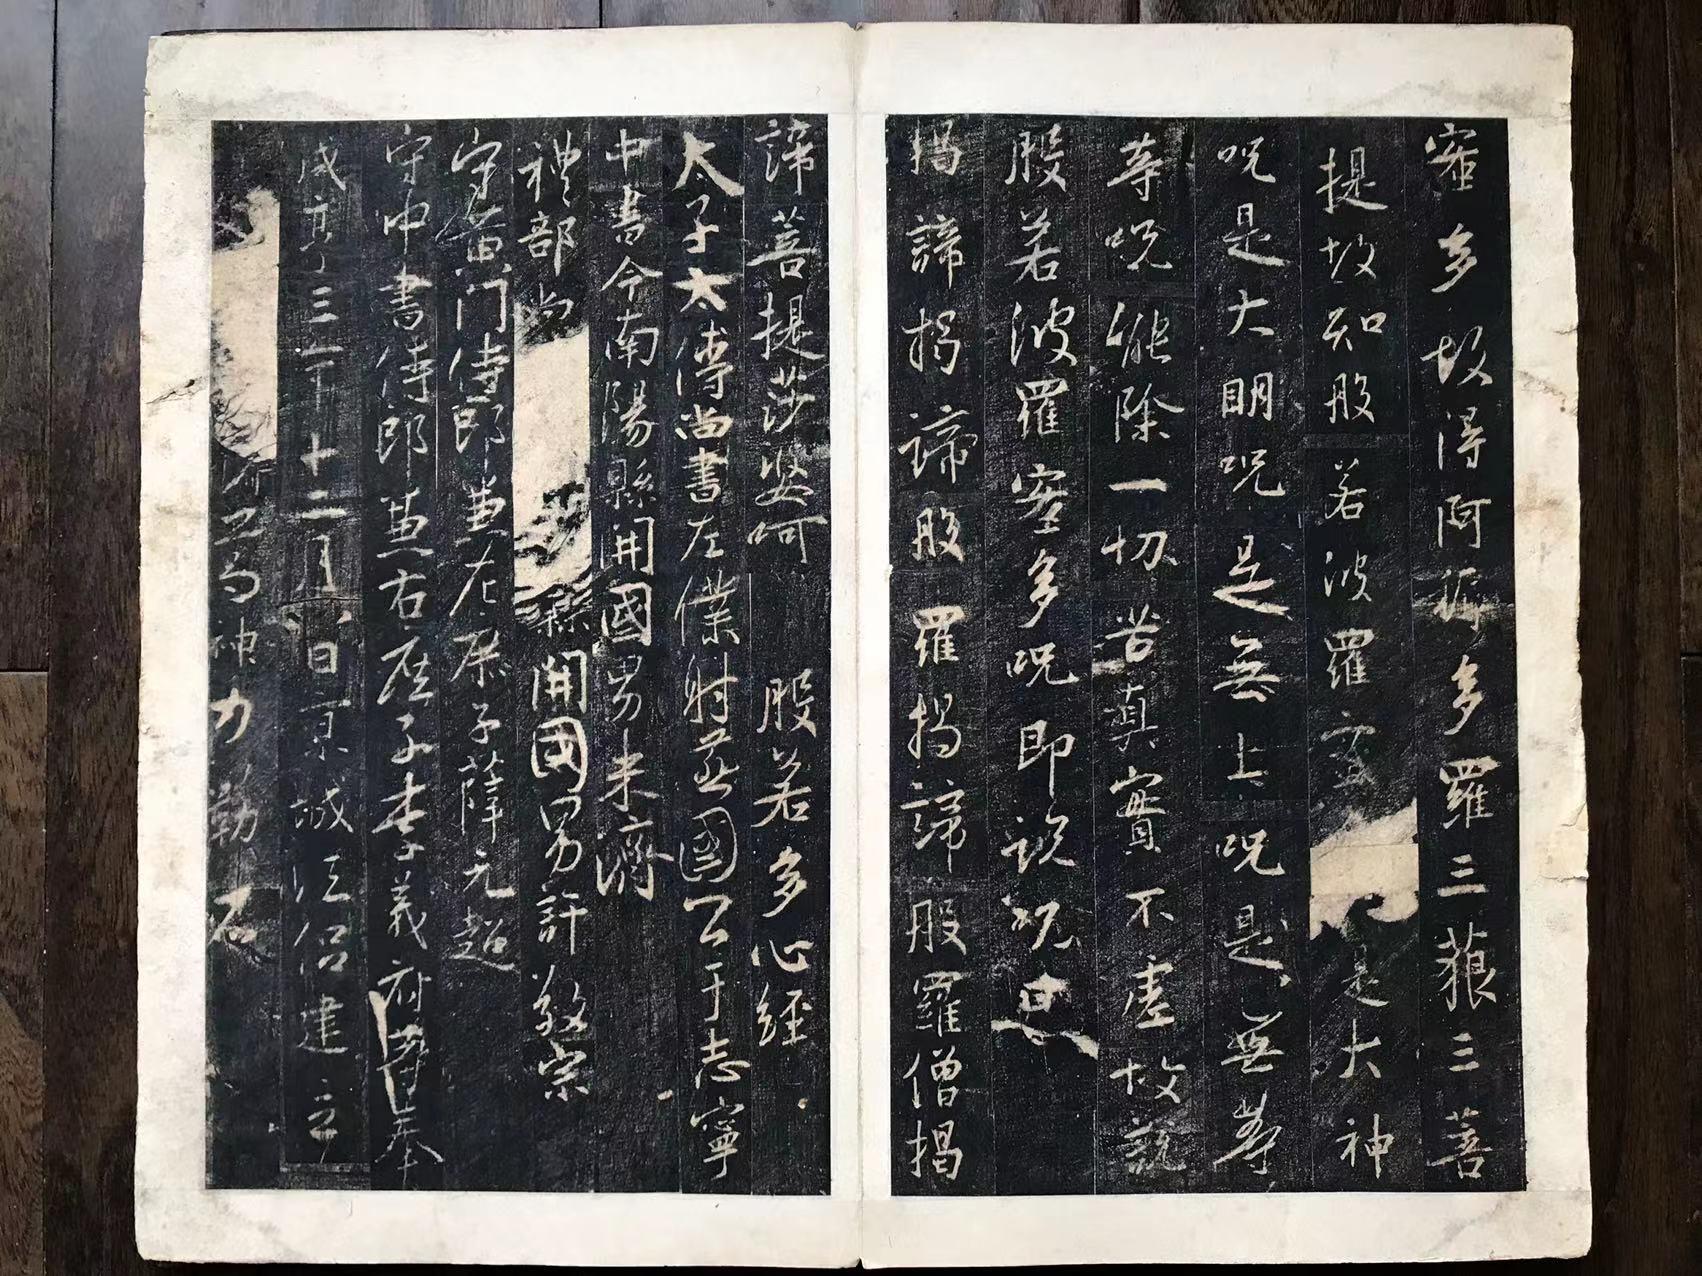 蜜多故得阿耨多羅三藐三菩
提故知般若波羅蜜是大神
咒是大明咒是無上咒是無等
等咒能除一切苦真實不虛故說
般若波羅蜜多咒即說咒曰
揭諦揭諦般羅揭諦般羅僧揭
諦菩提莎婆呵 般若多心經
太子太傅尚書左僕射燕國公于志寧
中書令南陽縣開國男来濟
禮部尚縣開國男許敬宗
守黃門侍郎兼左庶子薛元超
守中書侍郎兼右庶子李義府等奉
咸亨三年十二月八日京城法侶建立
文神力勒石